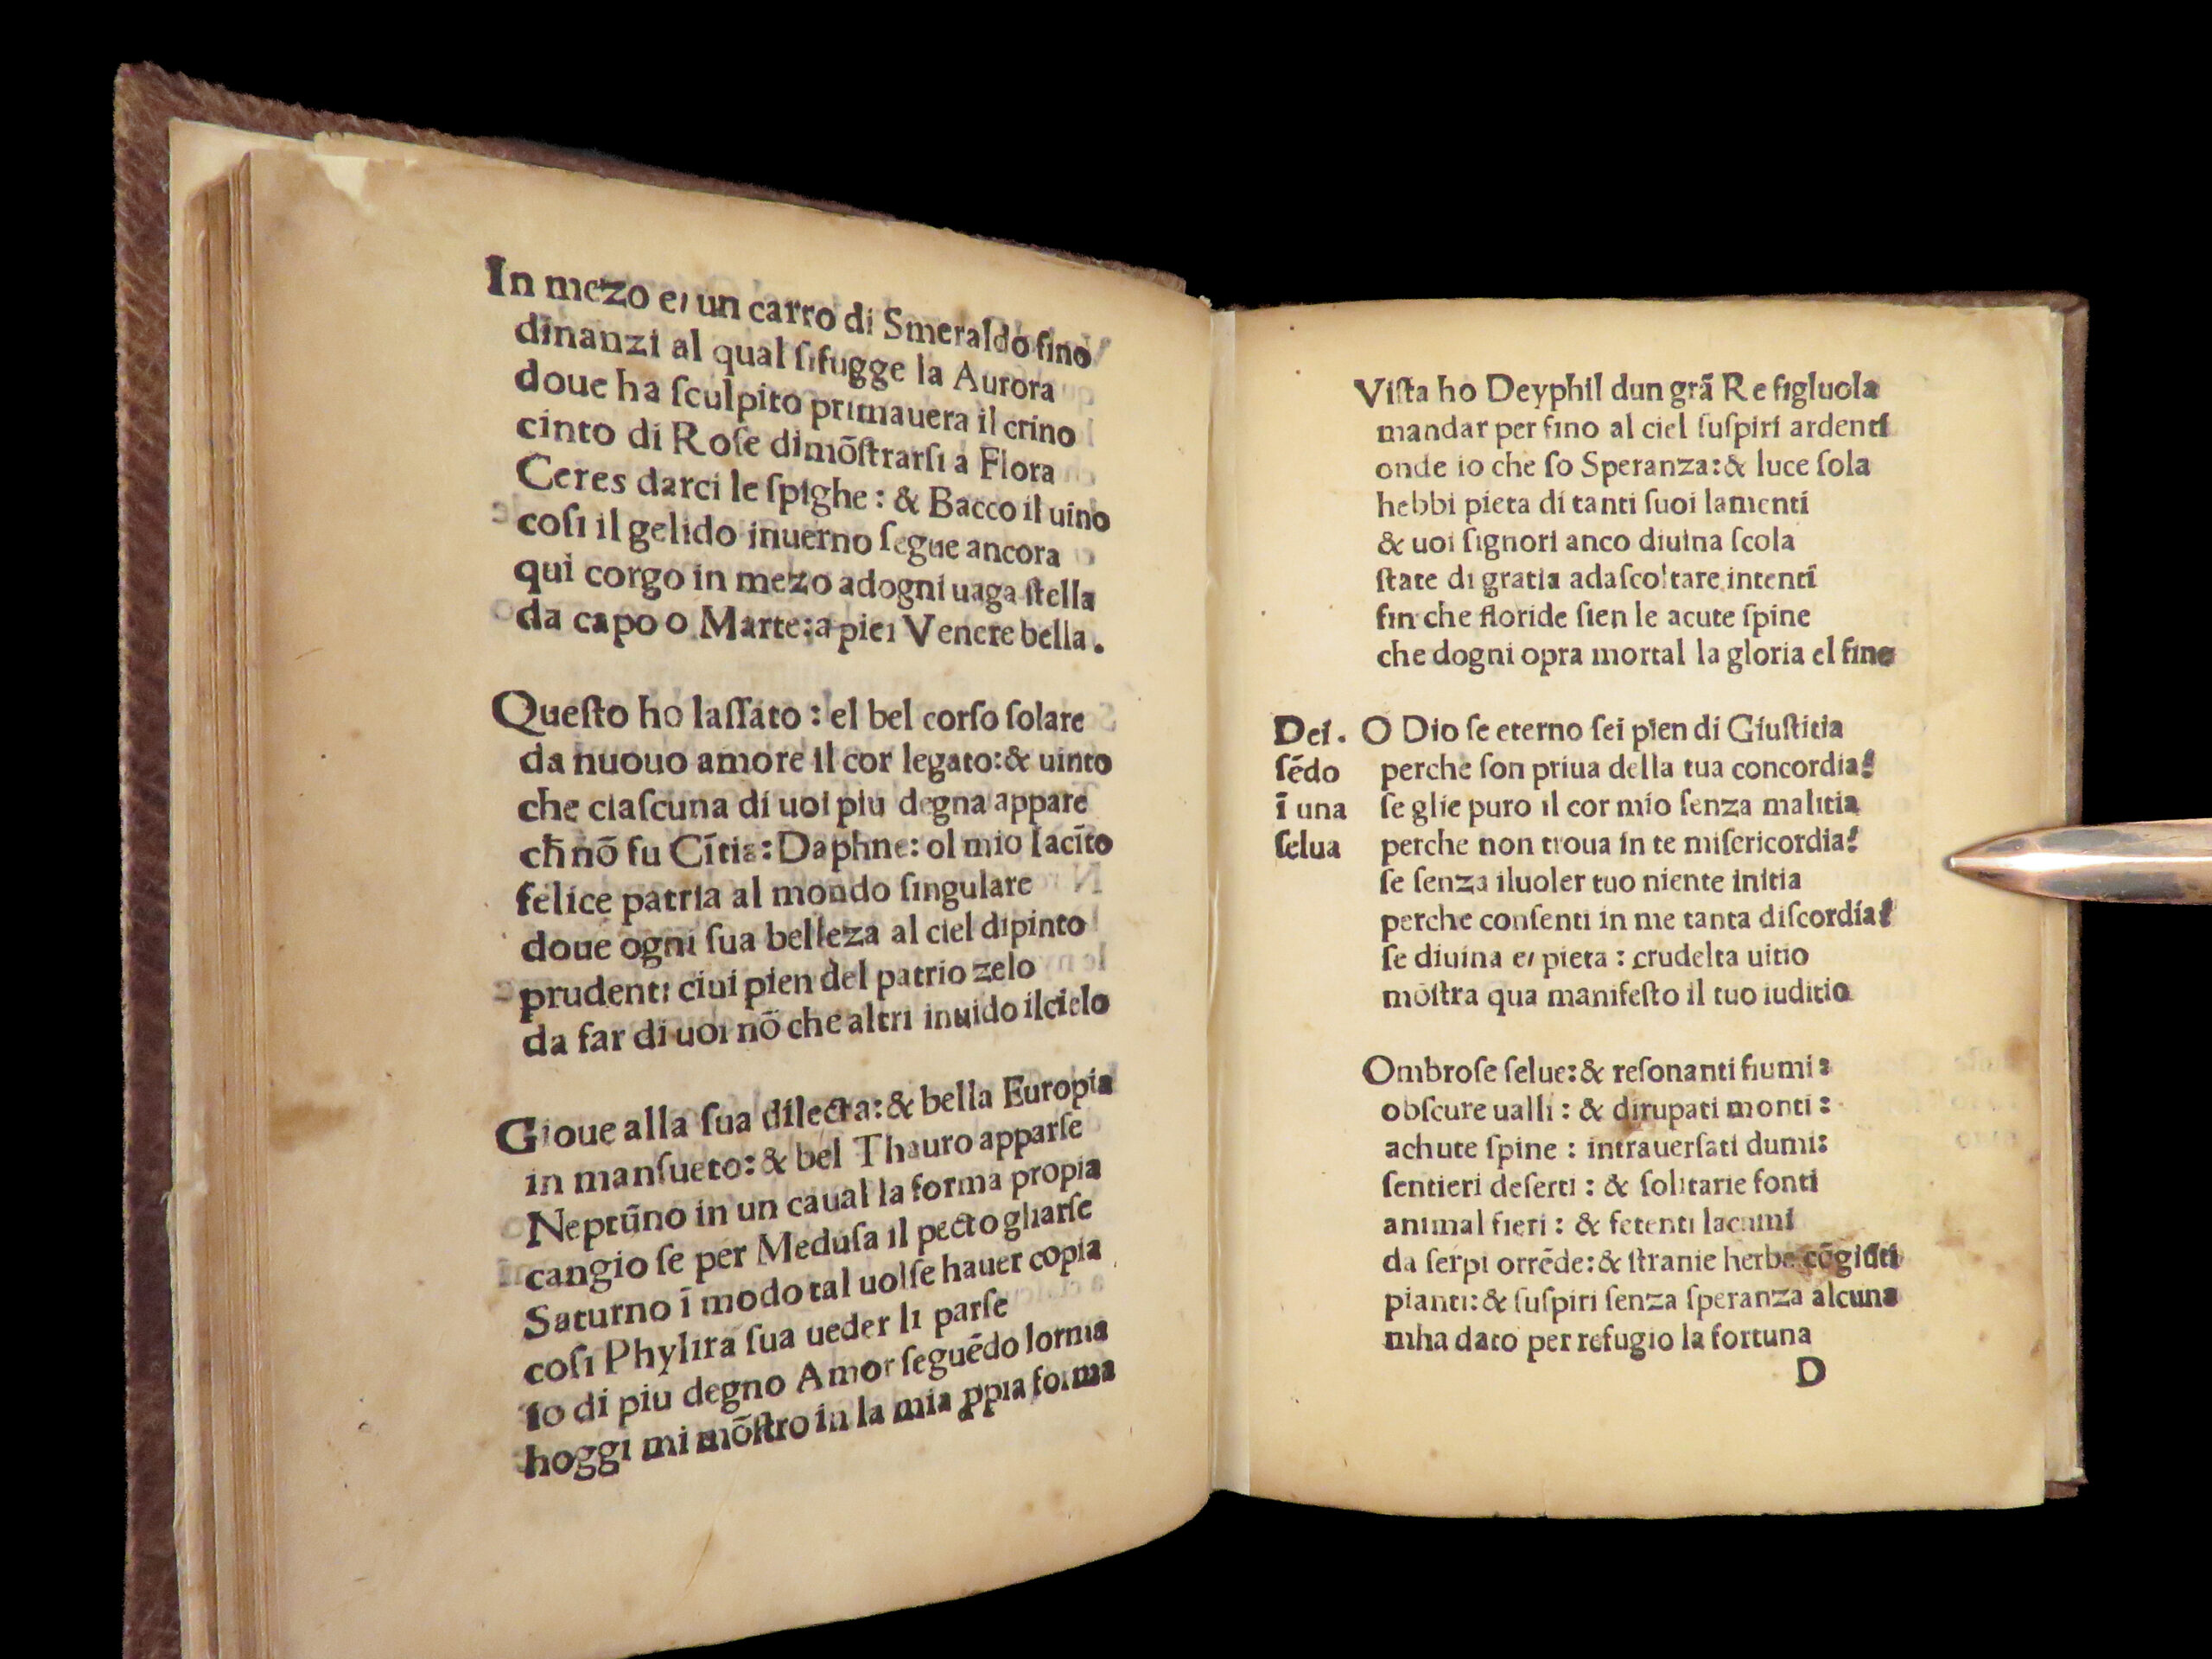 In mezo eı un carro di Smeraldo fino
dinanzi al qual ſifugge la Aurora
doue ha ſculpito primauera il crino
cinto di Roſe dimōſtrarſi a Flora
Ceres darci le ſpighe : & Bacco il uino
coſi il gelido inuerno ſegue ancora
qui corgo in mezo adogni uaga ſtella
da capo o Marte:a piei Venere bella.
Queſto ho laſſato : el bel corſo ſolare
da nuouo amore il cor legato:& uinto
che ciaſcuna di uoi piu degna appare
cħ nō fu Cītia: Daphne: ol mio Iacīto
felice patria al mondo ſingulare
doue ogni ſua belleza al ciel dipinto
prudenti ciui pien del patrio zelo
da far di uoi nō che altri inuido ilcielo
Gioue alla ſua dilecta:& bella Europia
in manſueto:& bel Thauro apparſe
Neptūno in un caual la forma propia
cangio ſe per Meduſa il pecto gliarſe
Saturno ī modo tal uolſe hauer copia
coſi Phylira ſua ueder li parſe
Io di piu degno Amor ſeguēdo lorma
hoggi mi mōſtro in la mia ꝓpia forma
Viſta ho Deyphil dun grā Re figluola
mandar per fino al ciel ſuſpiri ardenti
onde io che ſo Speranza:& luce ſola
hebbi pieta di tanti ſuoi lamenti
& uoi ſignori anco diuina ſcola
ſtate di gratia adaſcoltare intenti
fin che floride ſien le acute ſpine
che dogni opra mortal la gloria el fine
Dei. O Dio ſe eterno ſei pien di Giuſtitia
ſēdo perche ſon priua della tua concordia?
ī una ſe glie puro il cor mio ſenza malitia
ſelua perche non troua in te miſericordia?
ſe ſenza iluoler tuo niente initia
perche conſenti in me tanta diſcordia?
ſe diuina eı pieta : crudelta uitio
moſtra qua manifeſto il tuo iuditio
Ombroſe ſelue:& reſonanti fiumi:
obſcure ualli : & dirupati monti :
achute ſpine : intrauerſati dumi:
ſentieri deſerti : & ſolitarie fonti
animal fieri : & fetenti lacumi
da ſerpi orrēde:& ſtranie herbe cōgiūti
pianti:& ſuſpiri ſenza ſperanza alcuna
mha dato per refugio la fortuna
D